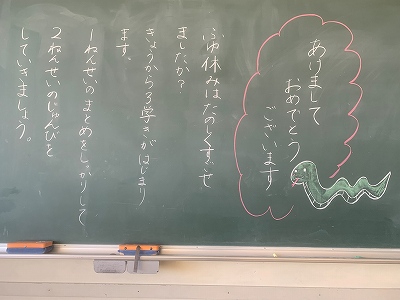 あけまして
おめでとう
ございます
ふゆ休みはたのしくすごせ
ましたか？
きょうから3学きがはじまり
ます。
1ねんせいのまとめをしっかりして
2ねんせいのじゅんびを
していきましょう。